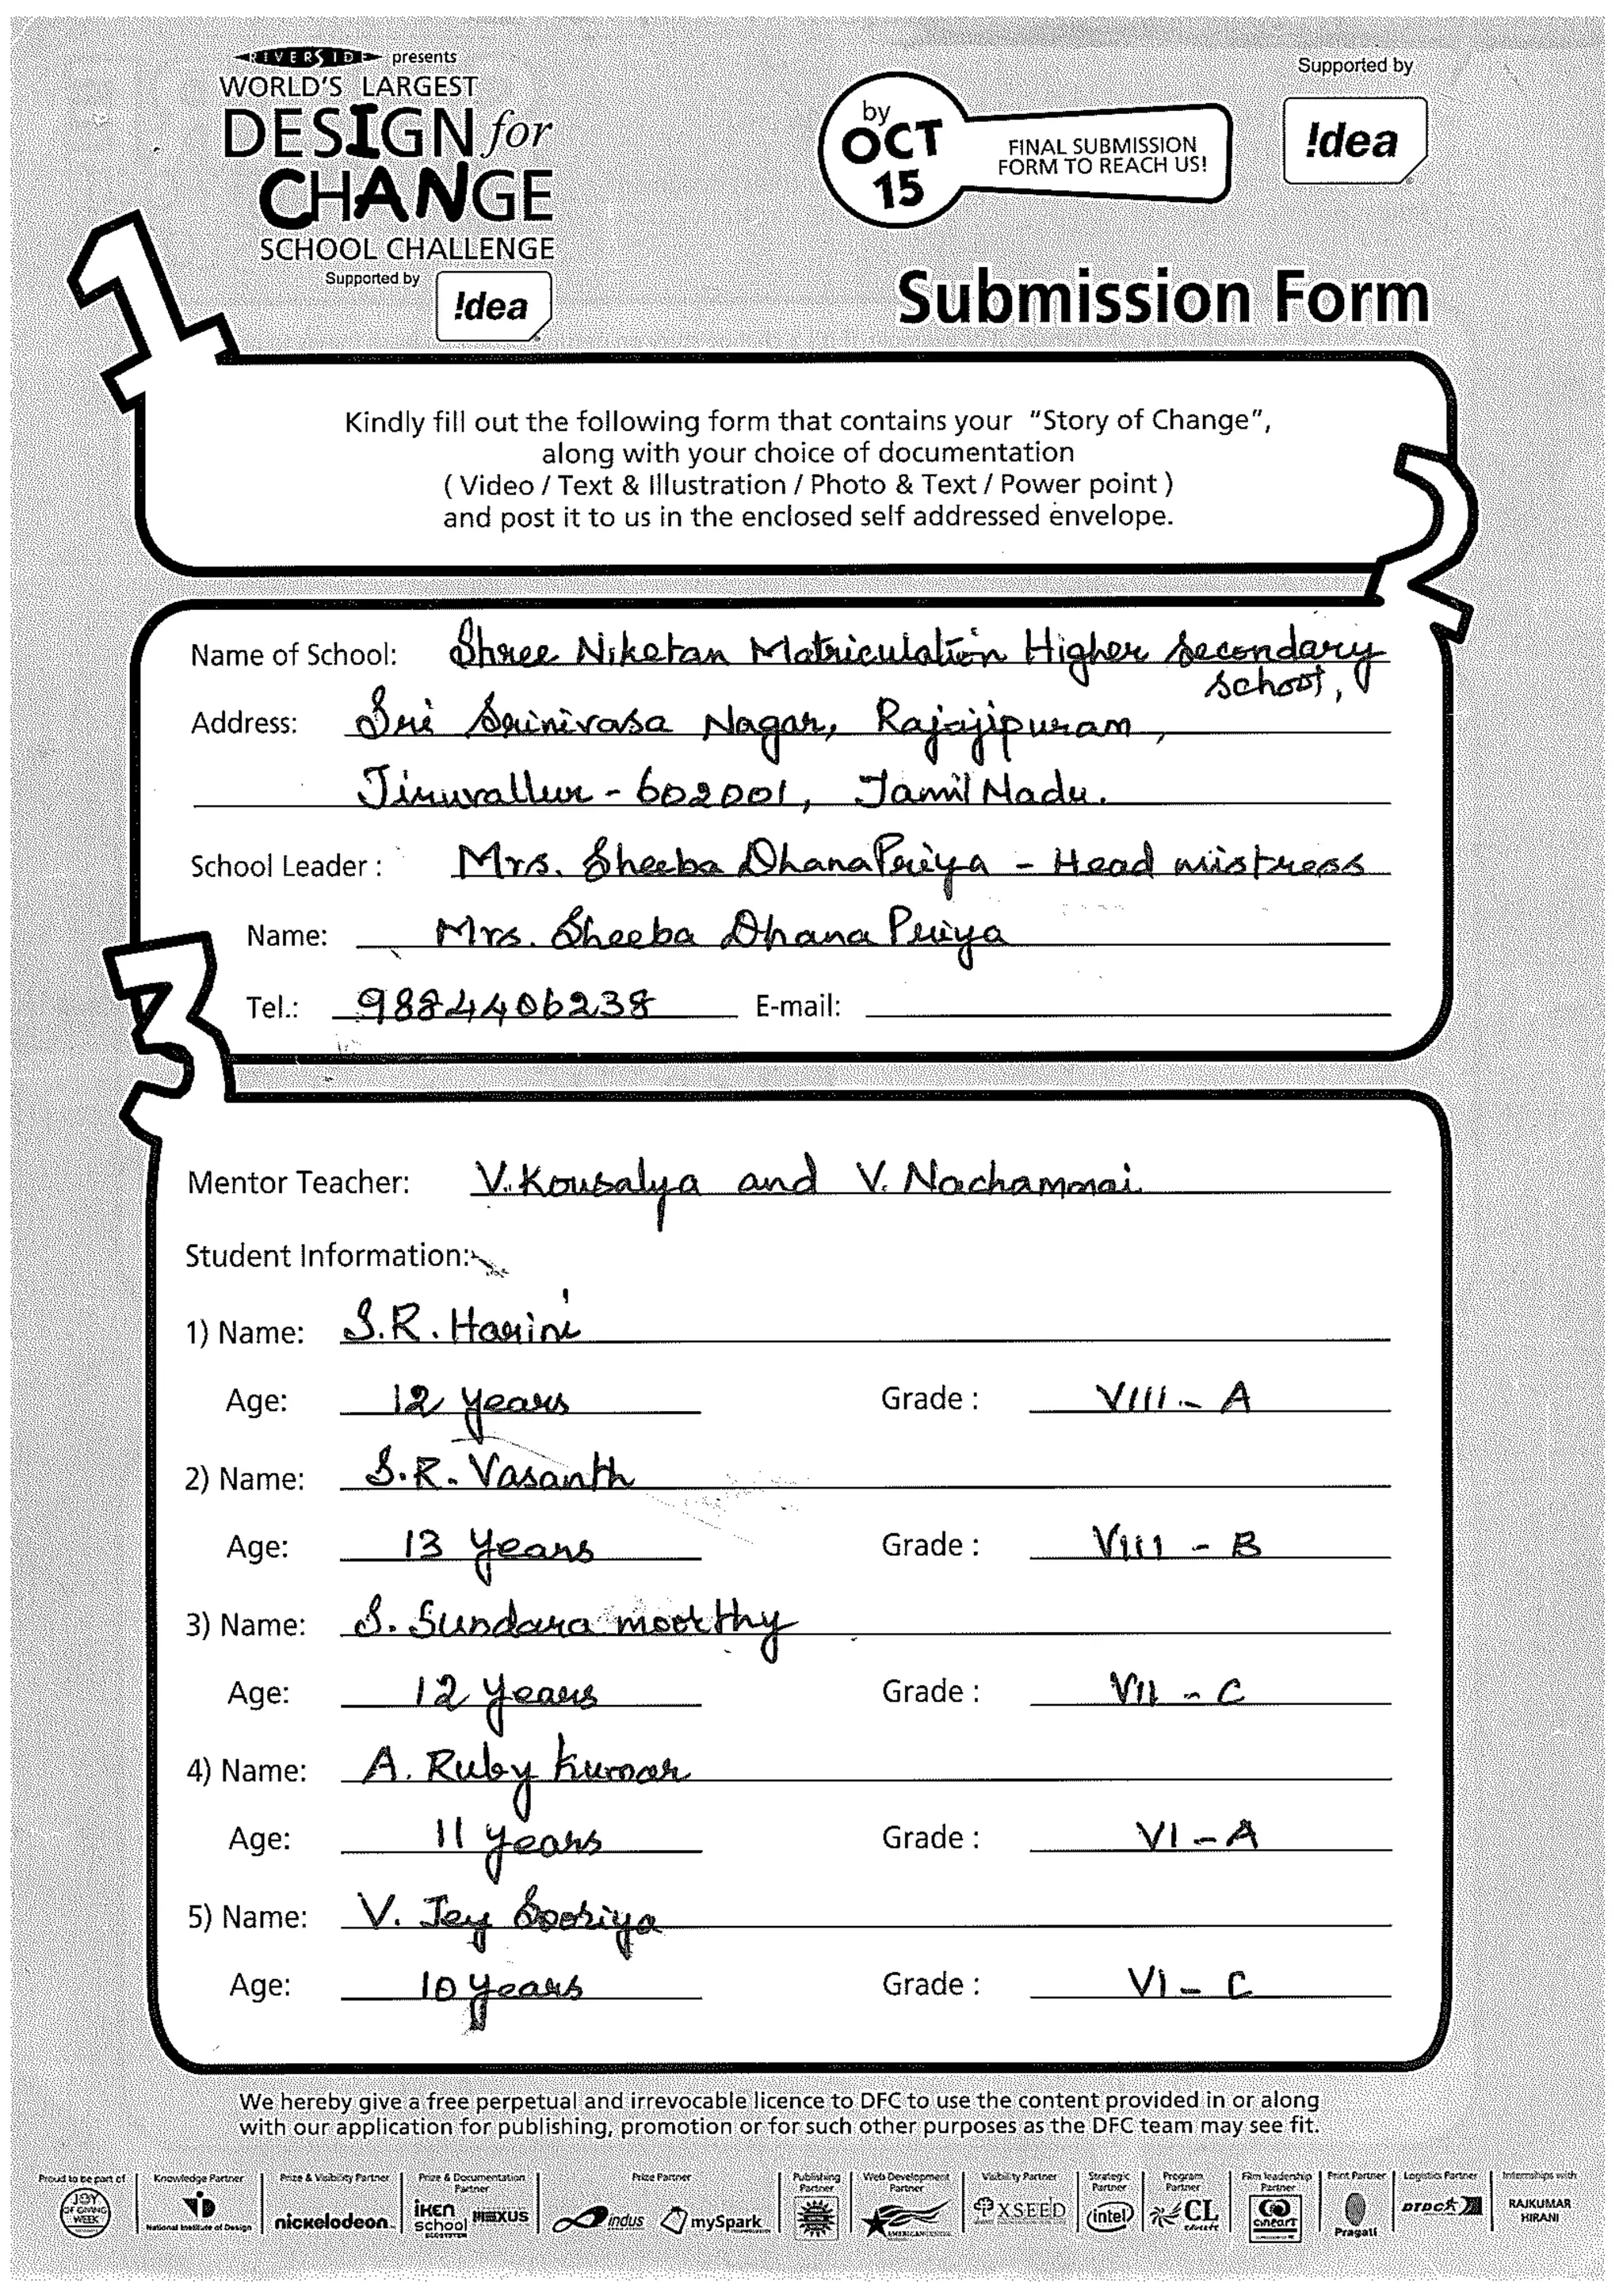 RIVERSIDE presents
WORLD'S LARGEST
DESIGN for
CHANGE
SCHOOL CHALLENGE
Supported by
!dea
by
OCT
15
FINAL SUBMISSION
FORM TO REACH US!
Supported by
!dea
Submission Form
1
Kindly fill out the following form that contains your "Story of Change",
along with your choice of documentation
( Video / Text & Illustration / Photo & Text / Power point )
and post it to us in the enclosed self addressed envelope.
2
Name of School: Shree Niketan Matriculation Higher Secondary
School,
Address: Sri Srinivasa Nagar, Rajajipuram,
Tiruvallur - 602001, Tamil Nadu.
School Leader : Mrs. Sheeba DhanaPriya - Head mistress
Name: Mrs. Sheeba Dhana Priya
Tel.: 9884406238 E-mail:
3
Mentor Teacher: V. Kousalya and V. Nachammai
Student Information:
1) Name: S.R. Harini
Age: 12 years Grade : VIII - A
2) Name: S.R. Vasanth
Age: 13 years Grade : VIII - B
3) Name: S. Sundara moorthy
Age: 12 years Grade : VII - C
4) Name: A. Ruby kumar
Age: 11 years Grade : VI - A
5) Name: V. Jey Sooriya
Age: 10 years Grade : VI - C
We hereby give a free perpetual and irrevocable licence to DFC to use the content provided in or along
with our application for publishing, promotion or for such other purposes as the DFC team may see fit.
Proud to be part of
JOY OF GIVING WEEK
Knowledge Partner
National Institute of Design
Prize & Visibility Partner
nickelodeon
Prize & Documentation Partner
iKEN school NEXUS
Prize Partner
indus mySpark
Publishing Partner
Web Development Partner
Visibility Partner
XSEED
Strategic Partner
intel
Program Partner
CL educate
Film leadership Partner
cineart
Print Partner
Pragati
Logistics Partner
DTDC
Internships with
RAJKUMAR HIRANI